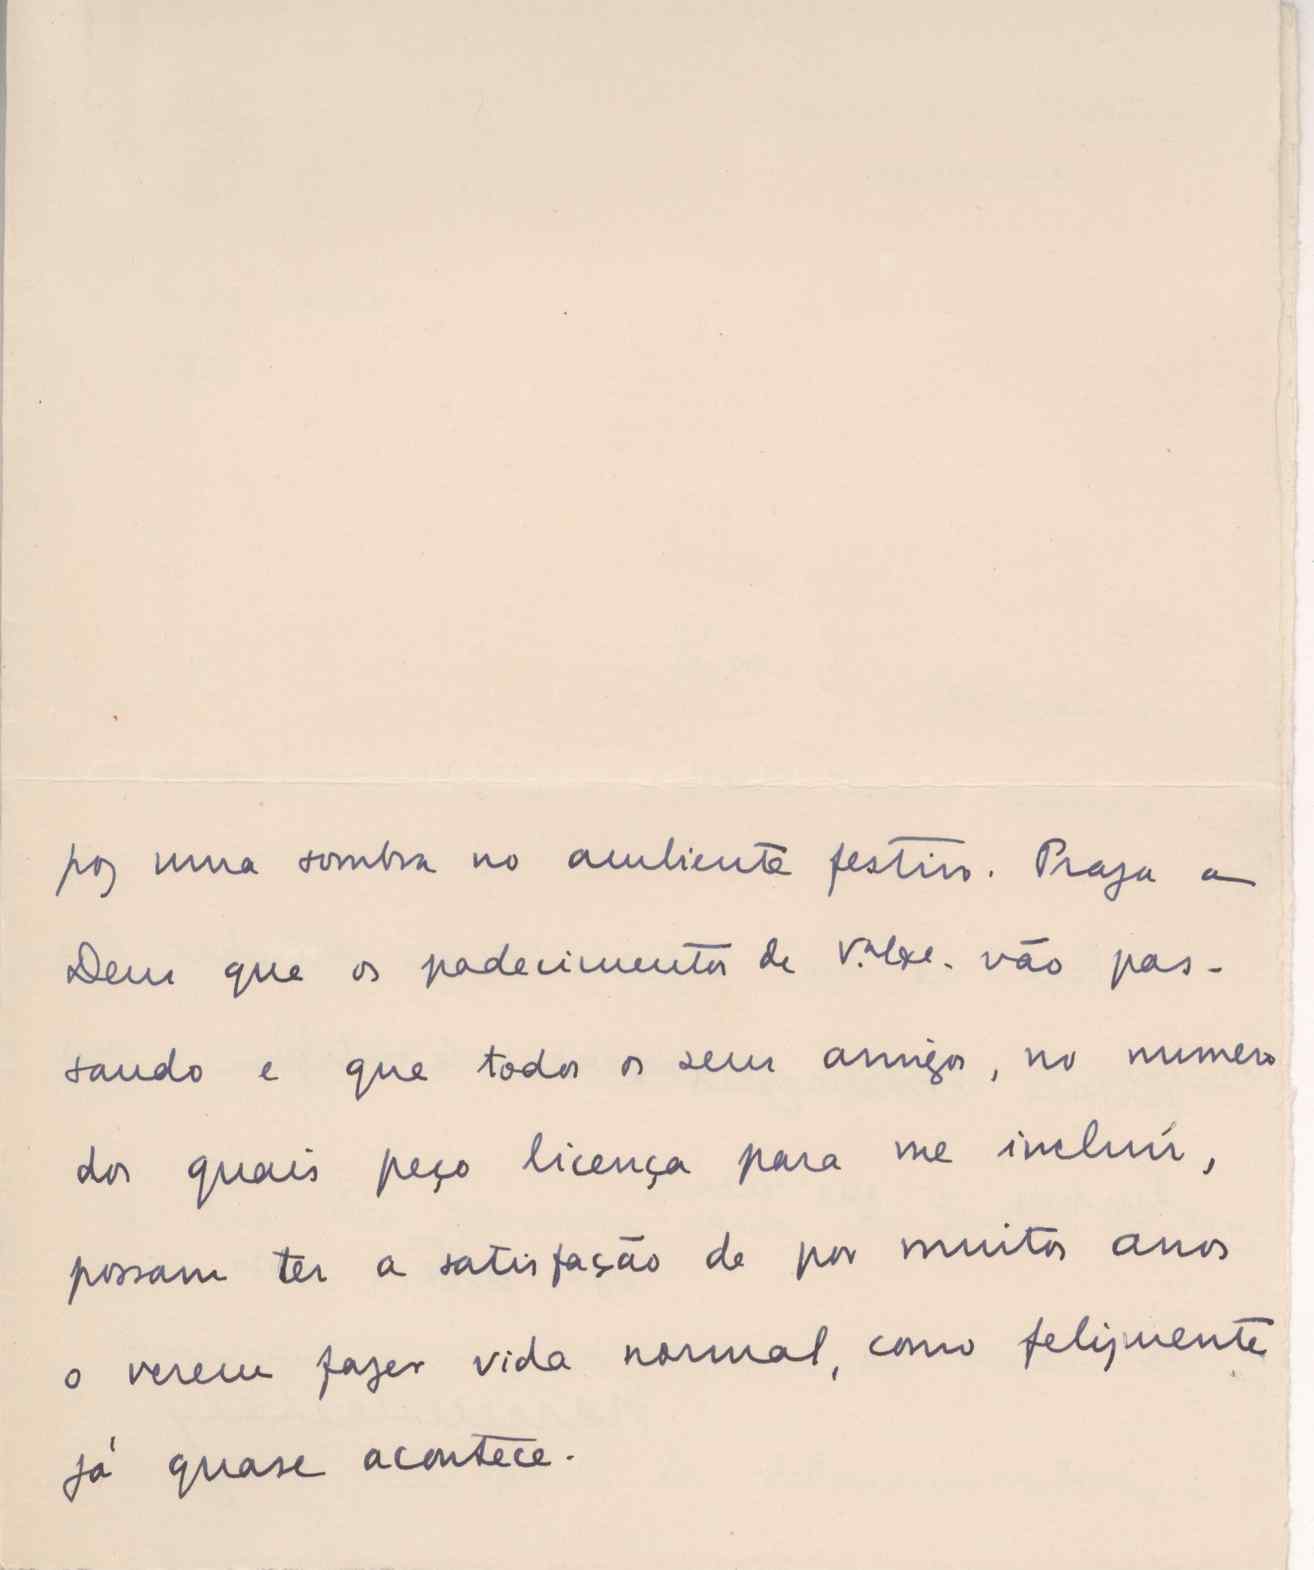 poz uma sombra no ambiente festivo. Praza a
Deus que os padecimentos de V. Exe. vão pas-
sando e que todos os seus amigos, no numero
dos quais peço licença para me incluír,
possam ter a satisfação de por muitos anos
o verem fazer vida normal, como felizmente
já quase acontece.